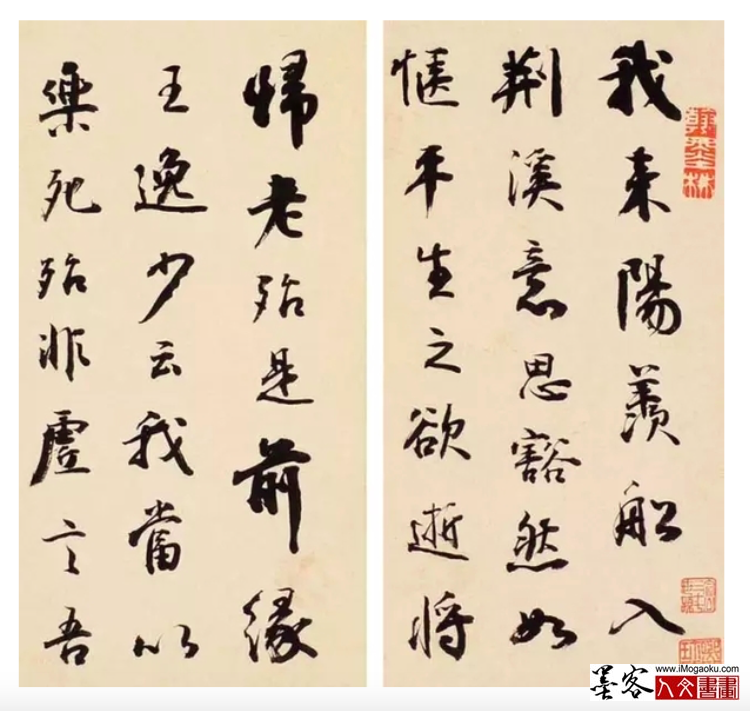 我来陽羨船入
荆溪意思豁然如
愜平生之欲逝将
歸老殆是前緣
王逸少云我當以
樂死殆非虛言吾
墨客
www.iMogaoku.com
人文書畫